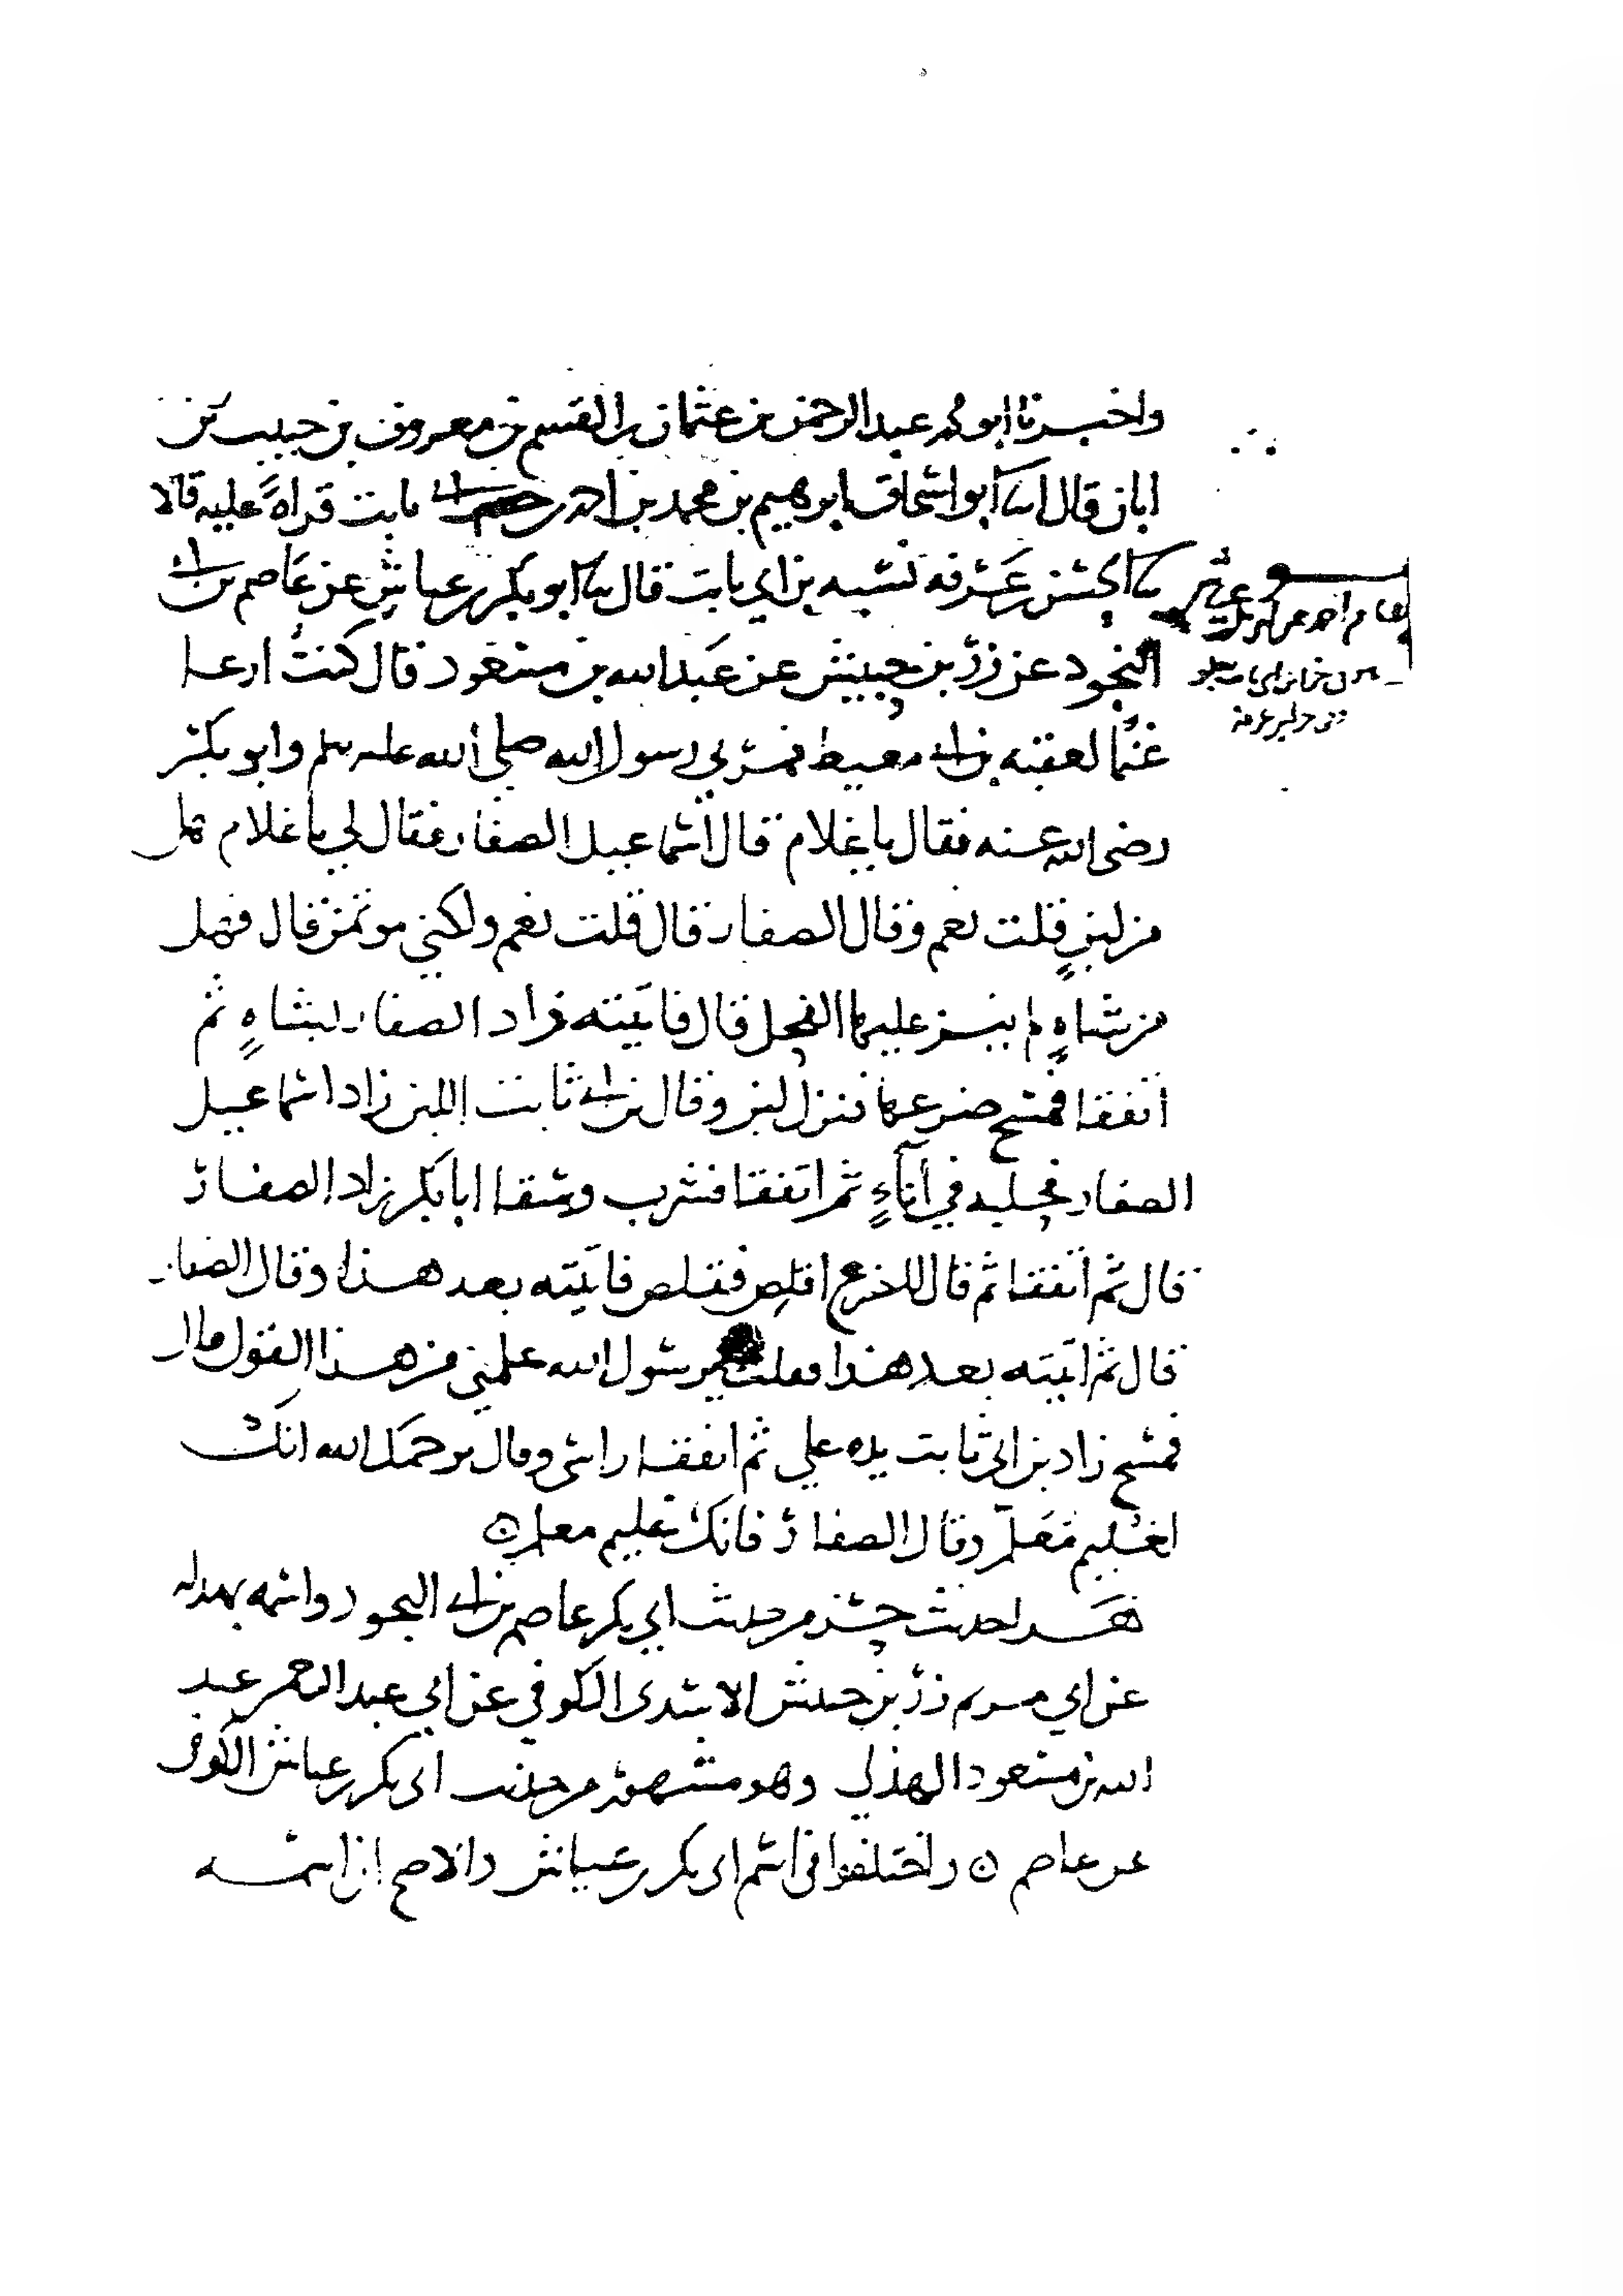 واخبرنا ابو محمد عبد الرحمن بن عثمان بن القسم بن معروف بن حبيب بن
ابان قال انبا ابو اسحاق ابرهيم بن محمد بن احمد بن ابي ثابت قراةً عليه قالا
ثنا الحسن بن عرفة نسبه بن ابي ثابت قال ثنا ابو بكر بن عياش عن عاصم بن ابي
النجود عن زر بن حبيش عن عبد الله بن مسعود قال كنت ارعا
غنما لعقبه بن ابي معيط فمر بي رسول الله صلى الله عليه وسلم وابو بكر
رضى الله عنه فقال يا غلام قال اسماعيل الصفار فقال لي يا غلام هل
من لبنٍ قلت نعم وقال الصفار قال قلت نعم ولكني موتمن قال فهل
من شاهٍ لم ينز عليها الفحل قال فاتيته زاد الصفار بشاهٍ ثم
اتفقا فمسح ضرعها فنزل لبن وقال بن ابي ثابت اللبن زاد اسماعيل
الصفار فحلبه في اناءٍ ثم اتفقا فشرب وسقا ابا بكر زاد الصفار
قال ثم اتفقا ثم قال للضرع اقلص فقلص فاتيته بعد هذا وقال الصفار
قال ثم اتيته بعد هذا فقلت يرسول الله علمني من هذا القول قال
فمسح زاد بن ابي ثابت يده علي ثم اتفقا راسى وقال يرحمك الله انك
لغليم معلم وقال الصفار فانك غليم معلم
هذا حديث حسن من حديث ابي بكر عاصم بن ابي النجود واسمه بهدله
عن ابي مريم زر بن حبيش الاسدى الكوفي عن ابي عبد الرحمن عبد
الله بن مسعود الهذلي وهو مشهور من حديث ابى بكر بن عياش الكوفى
عن عاصم واختلفوا في اسم ابى بكر بن عياش والاصح ان اسمه